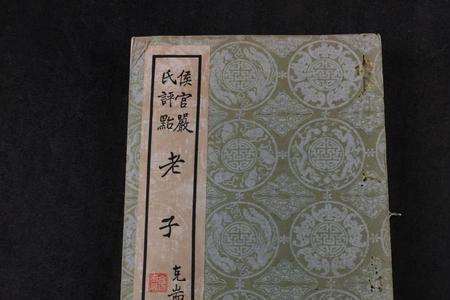 侯官嚴
氏評點
老子
克耑